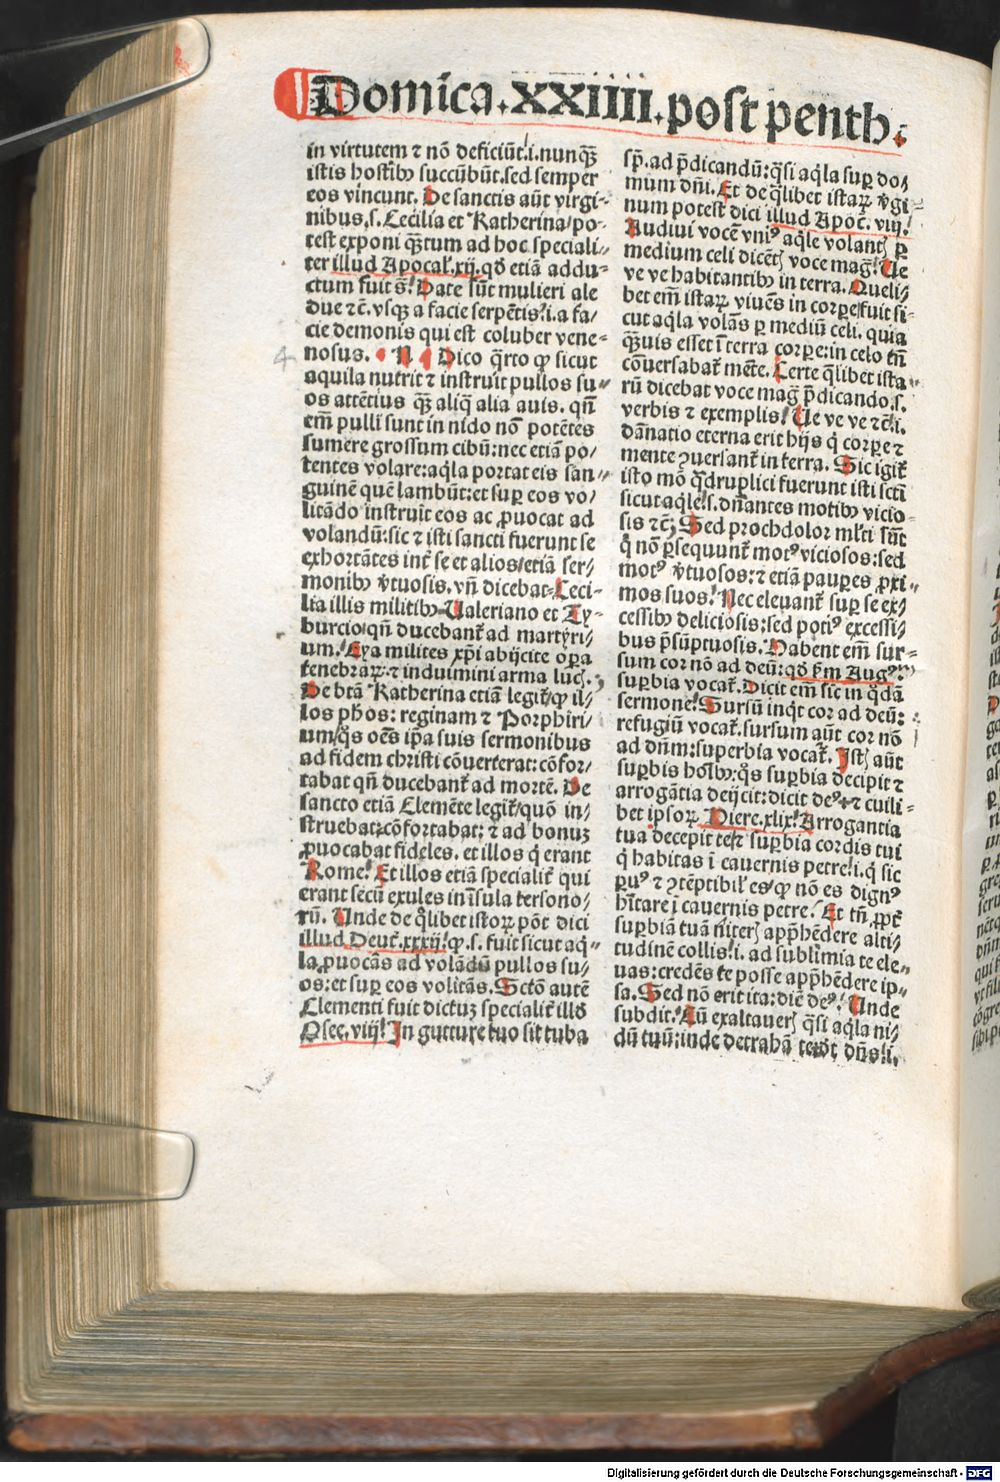 Domīca .xxiiii. post penth.
in virtutem ⁊ nō deficiūt.i.nunq̄ȝ
istis hostibꝰ succūbūt.sed semper
eos vincunt. De sanctis aūt virgi-
nibus.s. Cecilia et Katherina/po-
test exponi q̄ȝtum ad hoc speciali-
ter illud Apocal̄.xij. qd̄ etiā addu-
ctum fuit s̄. Date sūt mulieri ale
due ⁊c̄. vsq̄ȝ a facie serpētis.i.a fa/
cie demonis qui est coluber vene-
nosus. N Dico q̄rto ꝙ sicut
aquila nutrit ⁊ instruit pullos su-
os attētius q̄ȝ aliq̄ alia auis. qn̄
em̄ pulli sunt in nido nō potētes
sumere grossum cibū: nec etiā po/
tentes volare: aq̄la portat eis san-
guinē quē lambūt: et suꝑ eos vo/
litādo instruit eos ac ꝓuocat ad
volandū: sic ⁊ isti sancti fuerunt se
exhortātes int̄ se et alios/etiā ser/
monibꝰ v̄tuosis. vn̄ dicebat Ceci-
lia illis militibꝰ Valeriano et Ty-
burcio/qn̄ ducebant̄ ad martyri/
um. Eya milites xp̄i abijcite oꝑa
tenebraꝝ: ⁊ induimini arma lucꝭ.
De btā Katherina etiā legit̄/ꝙ il/
los ph̄os: reginam ⁊ Porphiri/
um/q̄s oēs ip̄a suis sermonibus
ad fidem christi cōuerterat: cōfor/
tabat qn̄ ducebant̄ ad mortē. De
sancto etiā Clemēte legit̄/quō in/
struebat: cōfortabat: ⁊ ad bonuȝ
ꝓuocabat fideles. et illos q̄ erant
Rome. Et illos etiā specialit̄ qui
erant secū exules in īsula tersono/
rū. Unde de q̄libet istoꝝ pōt dici
illud Deut̄.xxxij. ꝙ.s. fuit sicut aq-
la ꝓuocās ad volādū pullos su/
os: et suꝑ eos volitās. Sctō autē
Clementi fuit dictuȝ specialit̄ illd̄
Osee.viij. In gutture tuo sit tuba
sp̄. ad p̄dicandū: q̄si aq̄la suꝑ do/
mum dn̄i. Et de q̄libet istaꝝ v̄gi-
num potest dici illud Apoc̄. viij.
Audiui vocē vniꝰ aq̄le volantꝭ ꝑ
medium celi dicētꝭ voce maḡ. Ue
ve ve habitantibꝰ in terra. Queli/
bet em̄ istaꝝ viuēs in corꝑe/fuit si-
cut aq̄la volās ꝑ mediū celi. quia
q̄ȝuis esset ī terra corꝑe: in celo tn̄
cōuersabat̄ mēte. Certe q̄libet ista-
rū dicebat voce maḡ p̄dicando.s.
verbis ⁊ exemplis. Ue ve ve ⁊c̄.i.
dānatio eterna erit hijs q̄ corꝑe ⁊
mente ꝯuersant̄ in terra. Sic igit̄
isto mō q̄druplici fuerunt isti sctī
sicut aq̄le.s. dn̄antes motibꝰ vicio-
sis ⁊c̄. Sed prochdolor ml̄ti sūt
q̄ nō ꝑsequunt̄ motꝰ viciosos: sed
motꝰ v̄tuosos: ⁊ etiā pauꝑes ꝓxi-
mos suos. Nec eleuant̄ suꝑ se ex/
cessibꝰ deliciosis: sed potiꝰ excessi/
bus p̄sūptuosis. Habent em̄ sur-
sum cor nō ad deū: qd̄ ẜm Augꝰ.
suꝑbia vocat̄. Dicit em̄ sic in q̄dā
sermone. Sursū inq̄t cor ad deū:
refugiū vocat̄. sursum aūt cor nō
ad dn̄m: superbia vocat̄. Istꝭ aūt
suꝑbis hoībꝰ: q̄s suꝑbia decipit ⁊
arrogātia deijcit: dicit deꝰ ⁊ cuili-
bet ipsoꝝ Hiere.xlix. Arrogantia
tua decepit te/⁊ suꝑbia cordis tui
q̄ habitas ī cauernis petre.i. q̄ sic
ꝑuꝰ ⁊ ꝯtēptibil̄ es/ꝙ nō es dignꝰ
hītare ī cauernis petre. Et tn̄ ꝓpt̄
suꝑbiā tuā niterꝭ app̄hēdere alti/
tudinē collis.i. ad sublimia te ele-
uas: credēs te posse app̄hēdere ip-
sa. Sed nō erit ita: diē deꝰ. Unde
subdit. Cū exaltauerꝭ q̄si aq̄la ni/
dū tuū: inde detrahā te/dc̄t dn̄s.i.
Digitalisierung gefördert durch die Deutsche Forschungsgemeinschaft - DFG